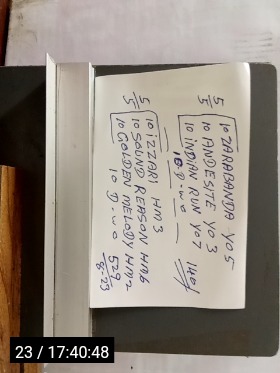 10 ZARABANDA YO 5
5/5 10 ANDESITE YO 3
10 INDIAN RUN YO 7 140/
10 D.W.O
10 IZZARI HM 3
5/5 10 SOUND REASON HM6
10 GOLDEN MELODY HM2
10 D.W.O
529
8-23
23 / 17:40:48